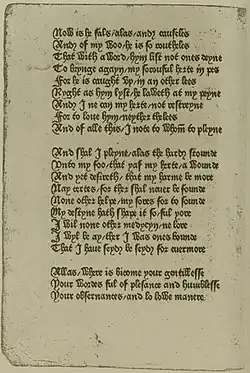 Now is he fals/alas/and causeles
And of my woo/he is so routheles
That with a word/hym list not ones deyne
To brynge agayn/my sorouful herte in pes
For he is caught vp/in an other lees
Ryght as hym lyst/he laweth at my peyne
And I ne can my herte/not restreyne
For to loue hym/neyther theles
And of alle this/I note to whom to pleyne

And shal I pleyne/alas the hardy stounde
Vnto my foo/that yaf my herte/a wounde
And yet desireth/that my harme be more
Nay certes/for ther shal neuer be founde
None other helpe/my sores for to sounde
My destyne hath shape it so/ful yore
I wil none other medycyn/ne lore
I wyl be ay/ther I was ones bounde
That I haue seyd/be seyd for euermore

Allas/where is bicome your gentillesse
Your wordes ful of plesance and humblesse
Your obseruances/and so lowe manere